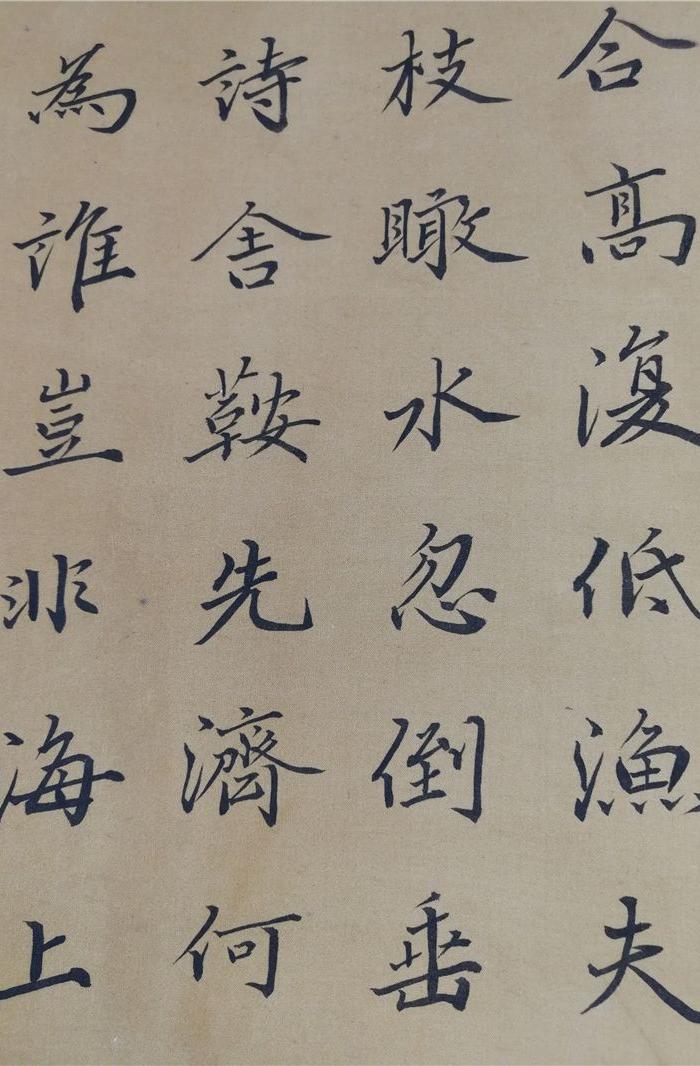 合高復低漁夫
枝瞰水忽倒垂
詩舎鞍先濟何
為誰豈非海上